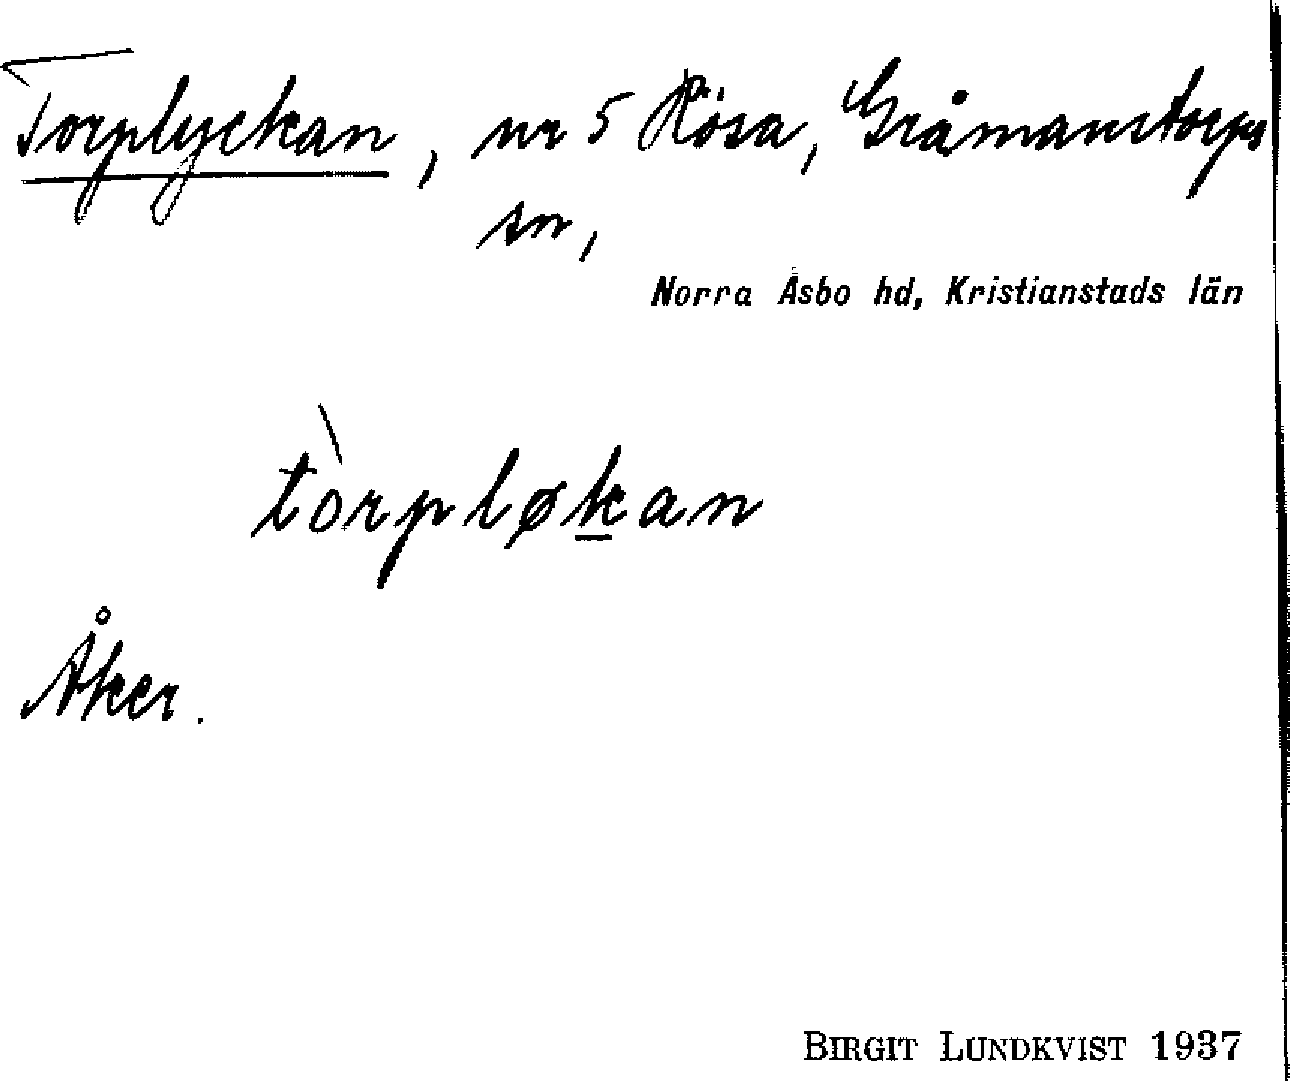 Torplyckan, nr 5 Rösa, Gråmanstorps
sn,
Norra Åsbo hd, Kristianstads län
tòrpløkan
Åker.
BIRGIT LUNDKVIST 1937